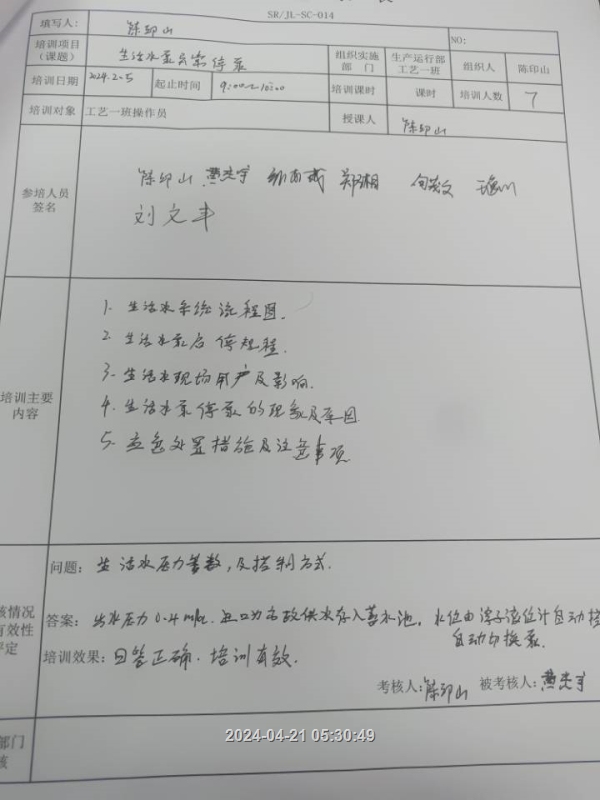 SR/JL-SC-014
填写人： 陈印山 NO:
培训项目（课题） 生活水泵异常停泵 组织实施部门 生产运行部工艺一班 组织人 陈印山
培训日期 2024.2.5 起止时间 9:00~10:00 培训课时 课时 培训人数 7
培训对象 工艺一班操作员 授课人 陈印山
参培人员签名 陈印山 郑湘
刘文丰
培训主要内容
1. 生活水系统流程图.
2. 生活水泵启停规程.
3. 生活水现场用户及影响.
4. 生活水泵停泵的现象及原因
5. 应急处置措施及注意事项
核情况
有效性
评定
问题： 生活水压力参数，及控制方式.
答案： 出水压力0.4mpa. 且口为市政供水存入蓄水池，水位由浮子液位计自动控
自动切换泵.
培训效果： 回答正确. 培训有效.
考核人：陈印山 被考核人：
部门
核
2024-04-21 05:30:49